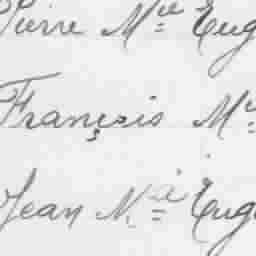 Pierre Mie Eug
François M
Jean Ma Eug